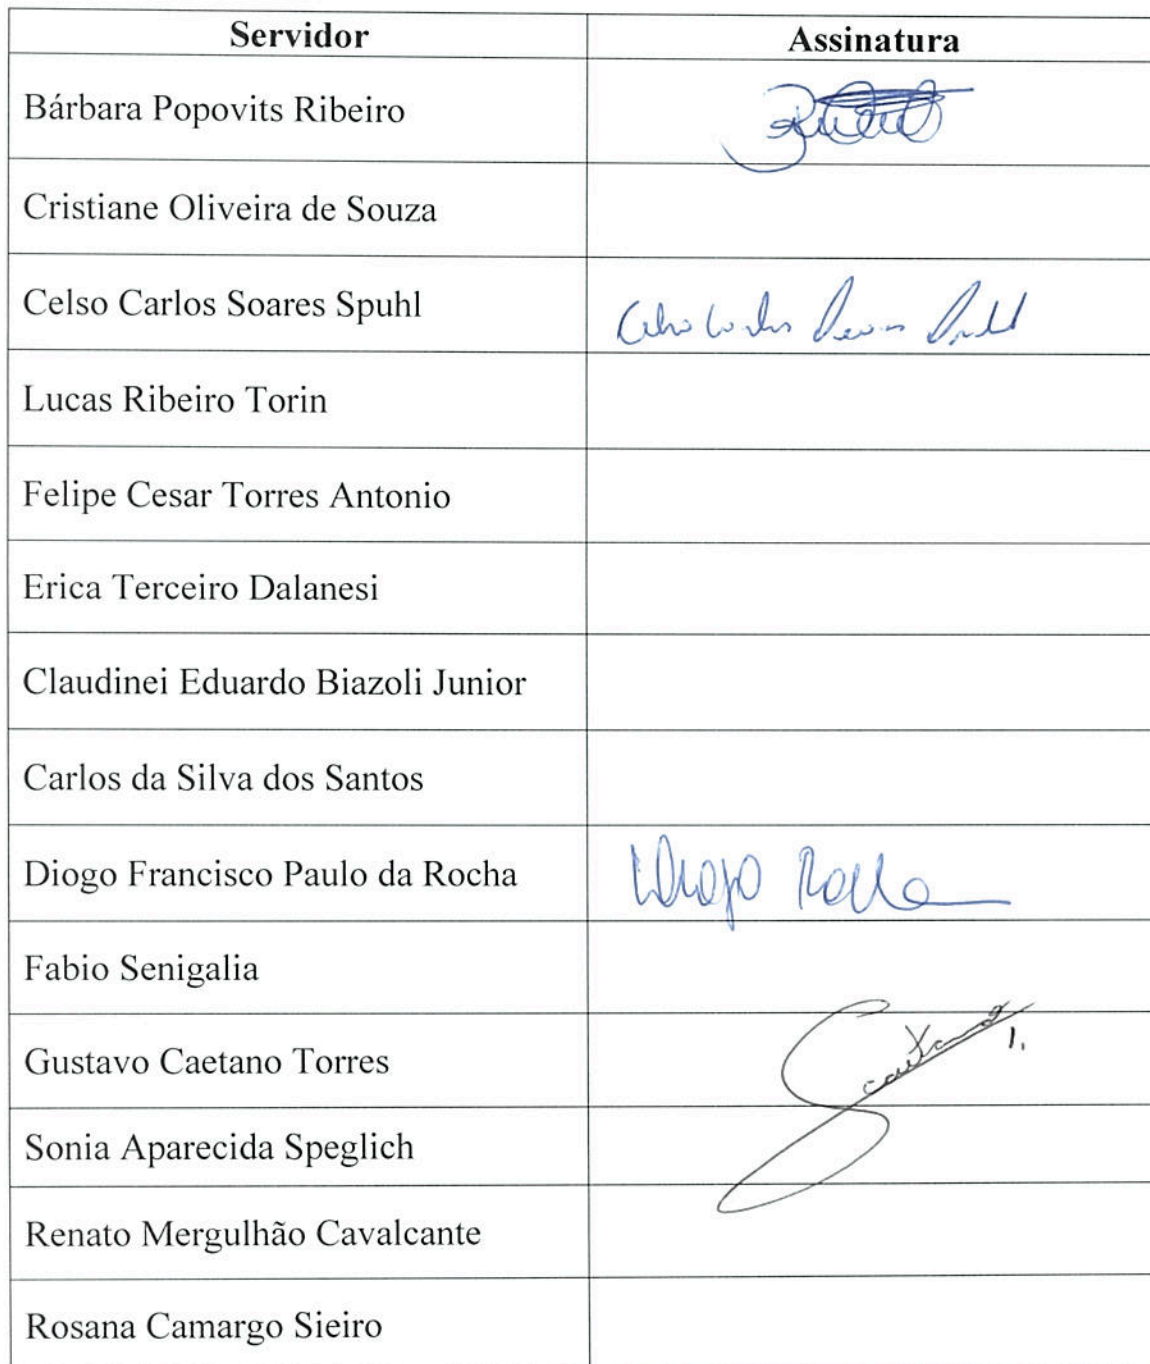 Servidor Assinatura
Bárbara Popovits Ribeiro
Cristiane Oliveira de Souza
Celso Carlos Soares Spuhl Celso Carlos Soares Spuhl
Lucas Ribeiro Torin
Felipe Cesar Torres Antonio
Erica Terceiro Dalanesi
Claudinei Eduardo Biazoli Junior
Carlos da Silva dos Santos
Diogo Francisco Paulo da Rocha Diogo Rocha
Fabio Senigalia
Gustavo Caetano Torres
Sonia Aparecida Speglich
Renato Mergulhão Cavalcante
Rosana Camargo Sieiro